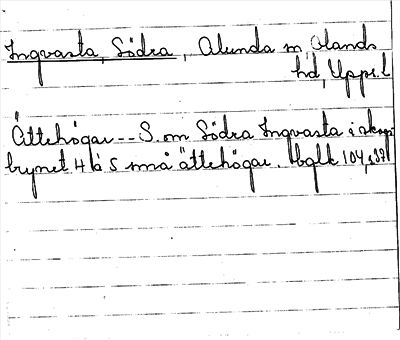 Ingvasta, Södra, Alunda sn, Olands
hd, Uppl.
Ättehögar -- S. om Södra Ingvasta i skogs
brynet 4 à 5 små ättehögar. 104, s 39